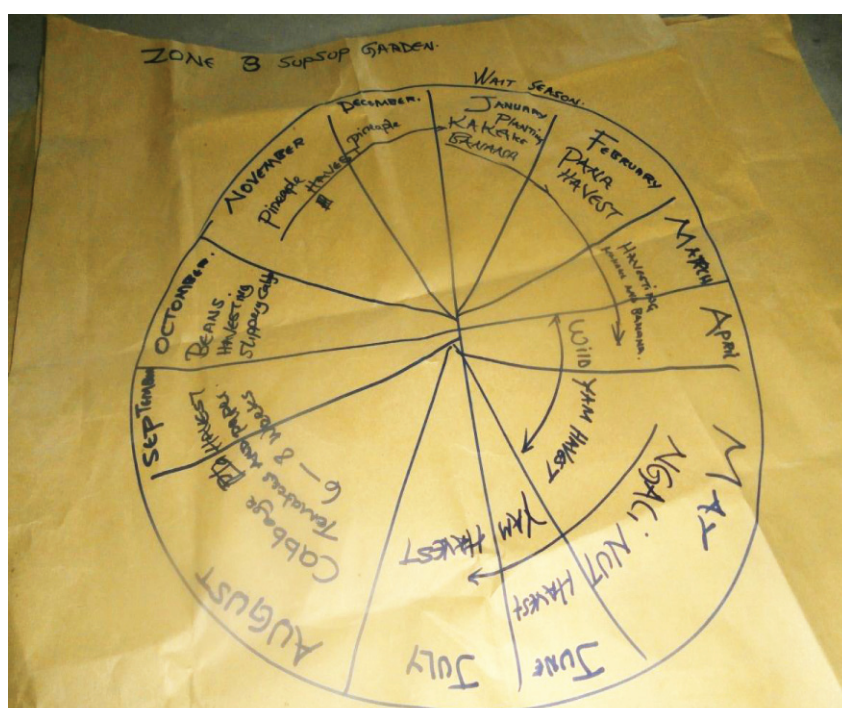 ZONE 3 SUPSUP GARDEN.
WAIT SEASON.
JANUARY
PLANTING
KAKAKE
BANANA
FEBRUARY
PANA
HAVEST
MARCH
HAVESTING
AND BANANA.
APRIL
WILD YAM HAVEST
MAY
NGALI NUT HAVEST
YAM HAVEST
JUNE
JULY
AUGUST
Cabbage
AND
6 – 8 Weeks
SEPTEMBER
HAVEST
OCTOMBER.
BEANS.
HAVESTING
SLIPPERY
NOVEMBER
Pineaple HAVEST
DECEMBER.
Pineaple